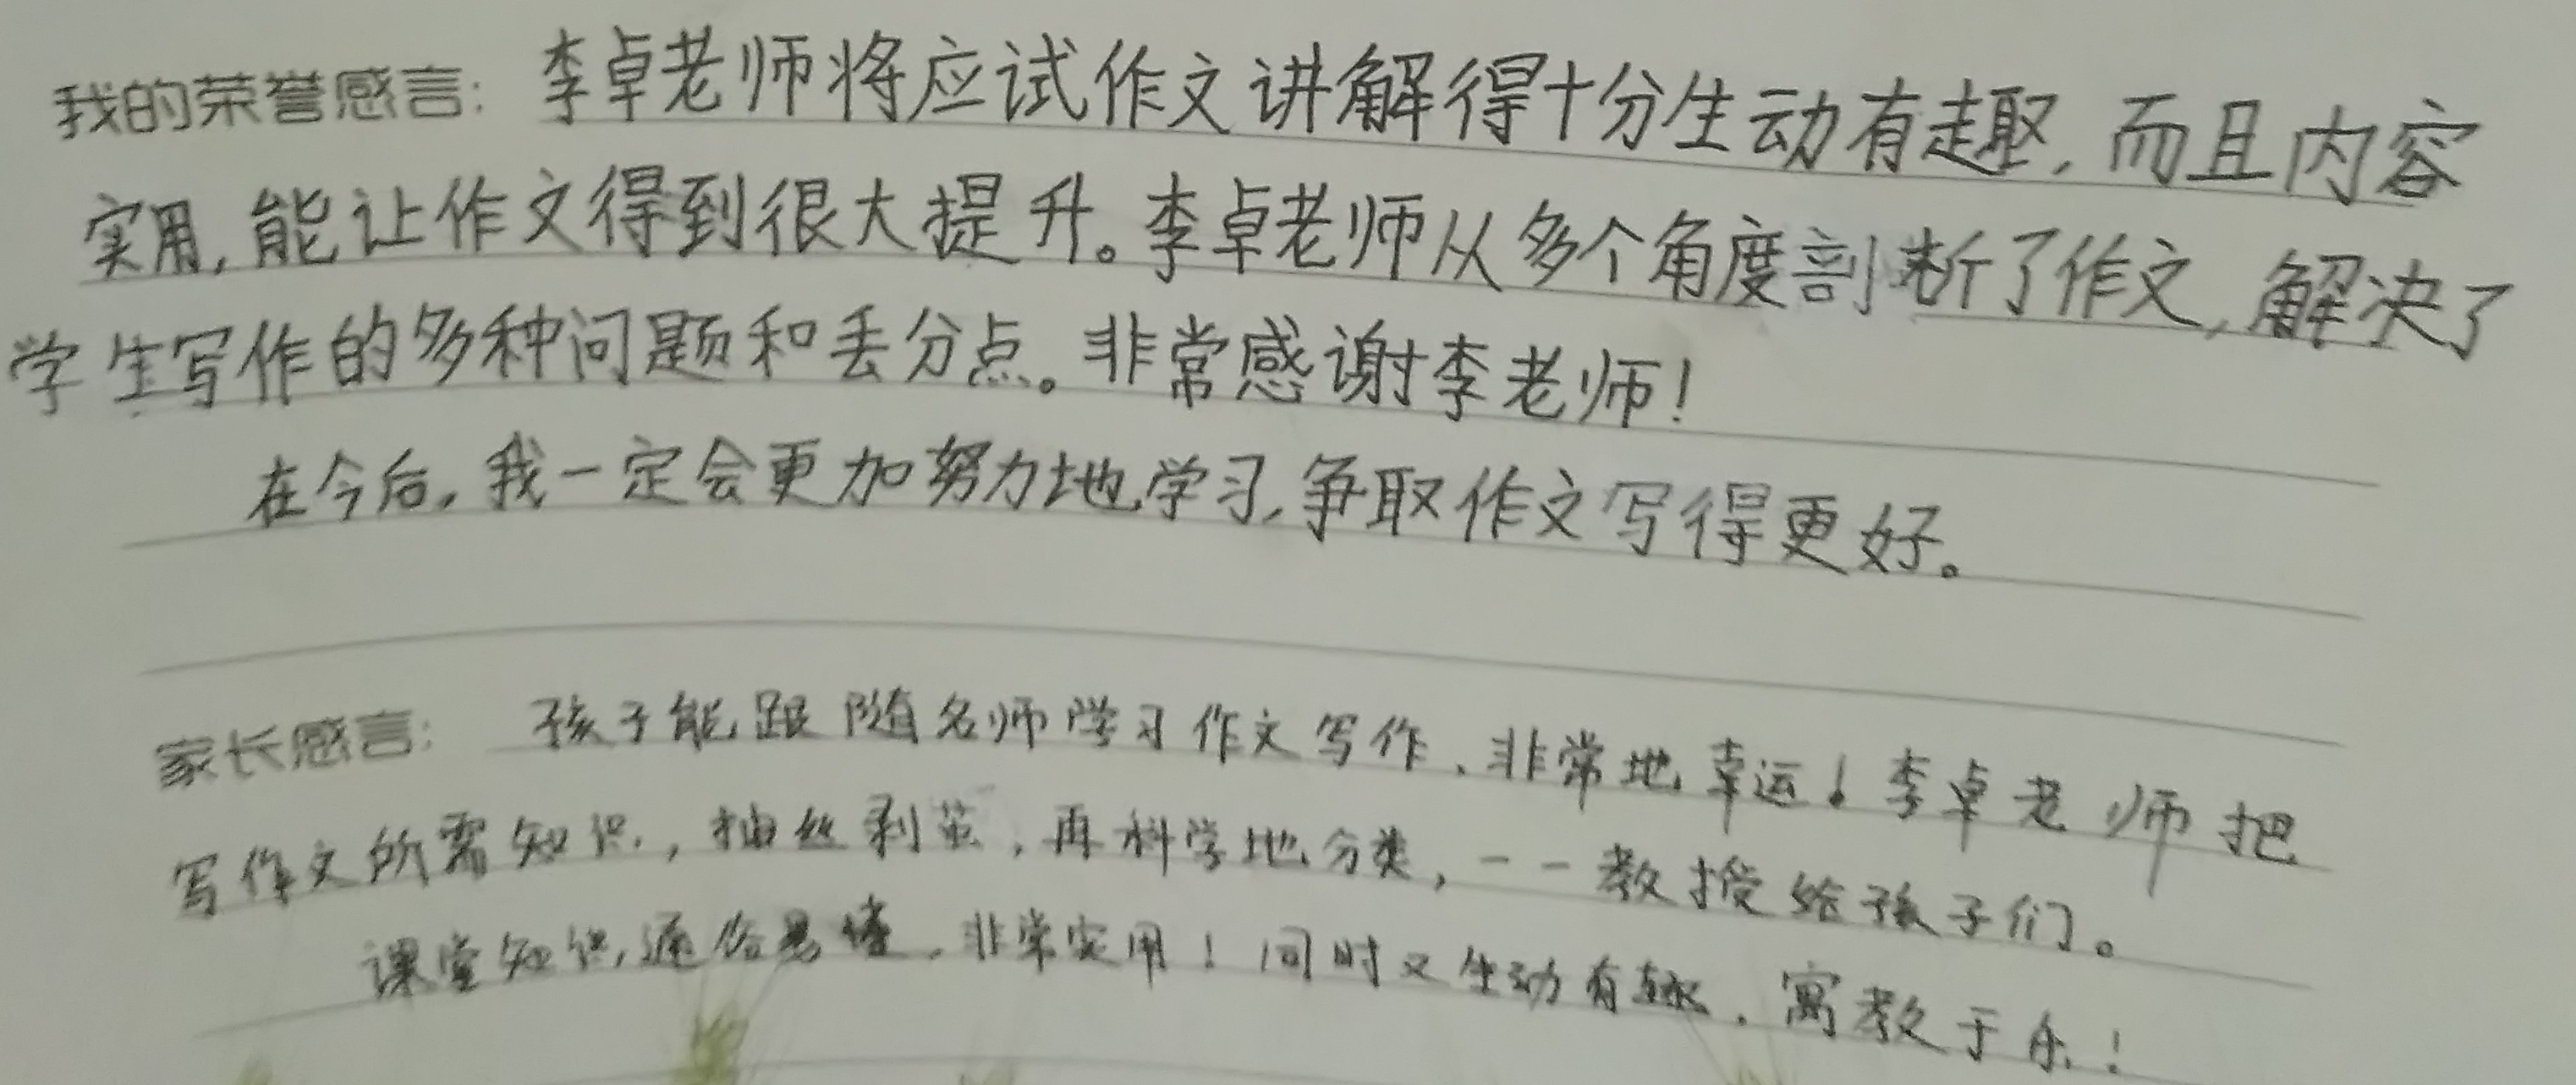 我的荣誉感言：李卓老师将应试作文讲解得十分生动有趣，而且内容
实用，能让作文得到很大提升。李卓老师从多个角度剖断了作文，解决了
学生写作的多种问题和丢分点。非常感谢李老师！
在今后，我一定会更加努力地学习，争取作文写得更好。
家长感言：孩子能跟随名师学习作文写作，非常地幸运！李卓老师把
写作文所需知识，抽丝剥茧，再科学地分类，一一教授给孩子们。
课堂知识，通俗易懂，非常实用！同时又生动有趣，寓教于乐！